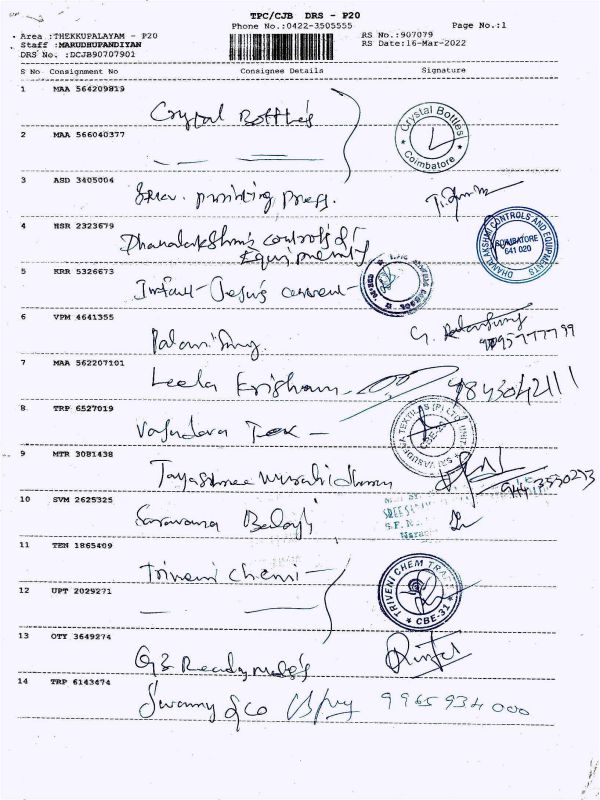 TPC/CJB DRS - P20
Phone No.:0422-3505555
Page No.:1
Area :THEKKUPALAYAM - P20
RS No.:907079
Staff :MARUDHUPANDIYAN
RS Date:16-Mar-2022
DRS No. :DCJB90707901
S No Consignment No Consignee Details Signature
1 MAA 564209819
Crystal Bottles
Crystal Bottles Coimbatore
2 MAA 566040377
3 ASD 3405004
printing press.
4 HSR 2323679
Dhanalakshmi controls &
Equipments
DHANALAKSHMI CONTROLS AND EQUIPMENTS
COIMBATORE
641 020
5 KRR 5326673
Infant Jesus convent
6 VPM 4641355
Palanisamy.
7 MAA 562207101
Leela Krishnan 9843042111
8 TRP 6527019
Vasudeva Tex
CBE-
9 MTR 3081438
Jayashree
10 SVM 2625325
Saravana Balaji
11 TEN 1865409
Triveni Chemi
TRIVENI CHEM
CBE-31
12 UPT 2029271
13 OTY 3649274
Readymades
14 TRP 6143474
Swamy & co 9965934000